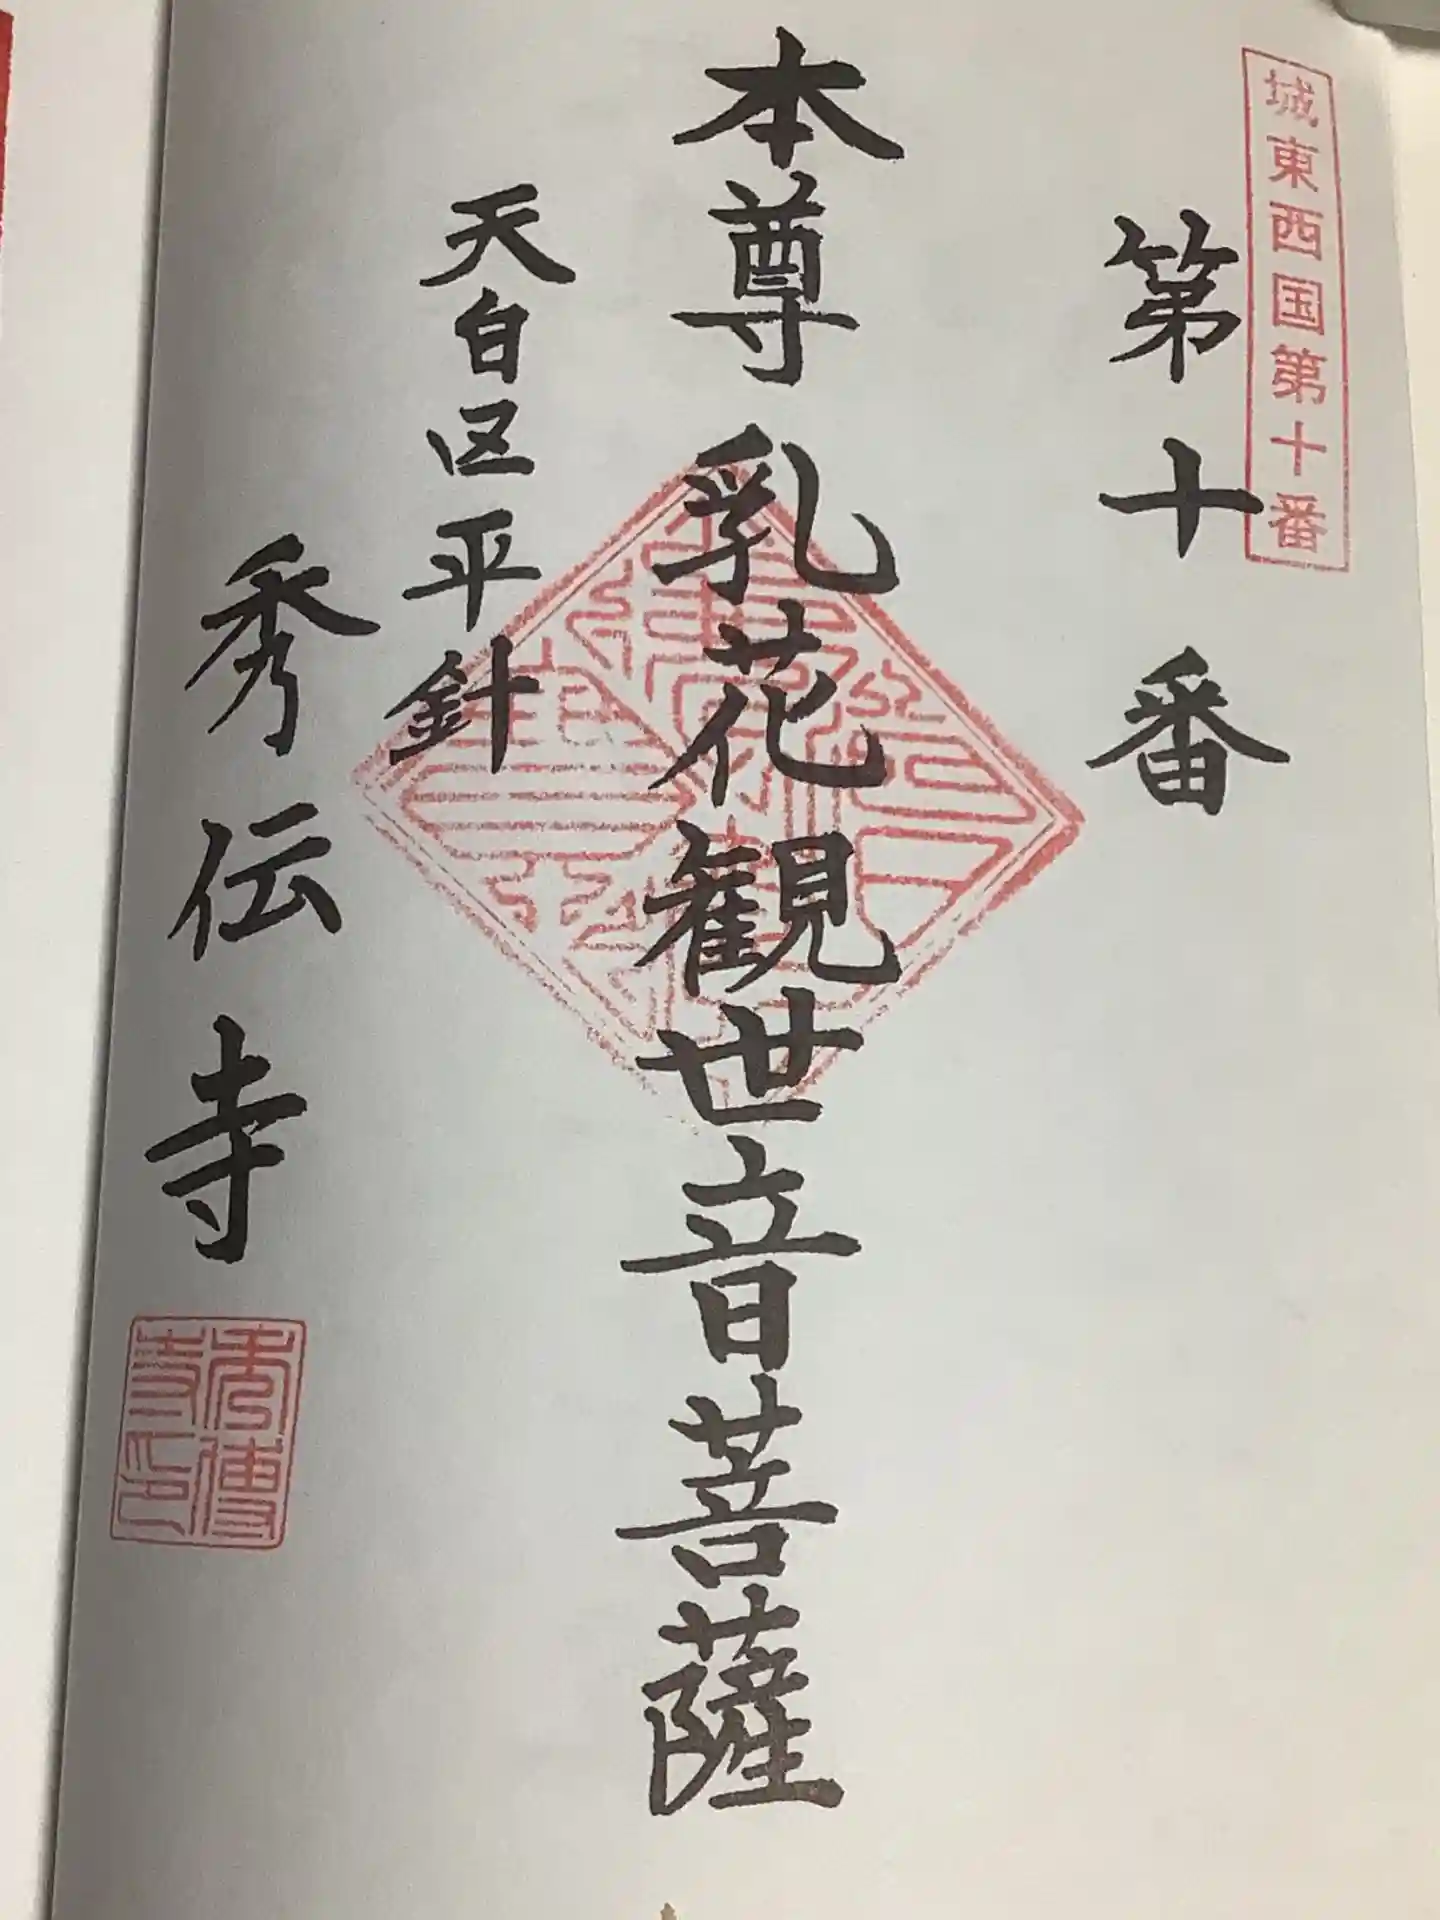 城東西国第十番
第十番
本尊乳花観世音菩薩
天白区平針
秀伝寺
秀傳寺印